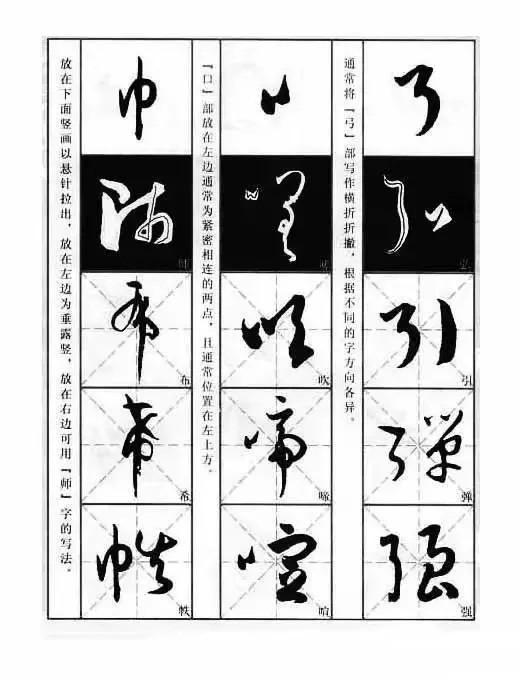 弓
弘
引
弹
强
通常将『弓』部写作横折折撇，根据不同的字方向各异。
口
吹
啼
喧
『口』部放在左边通常为紧密相连的两点，且通常位置在左上方。
巾
师
布
希
帙
放在下面竖画以悬针拉出，放在左边为垂露竖，放在右边可用『师』字的写法。